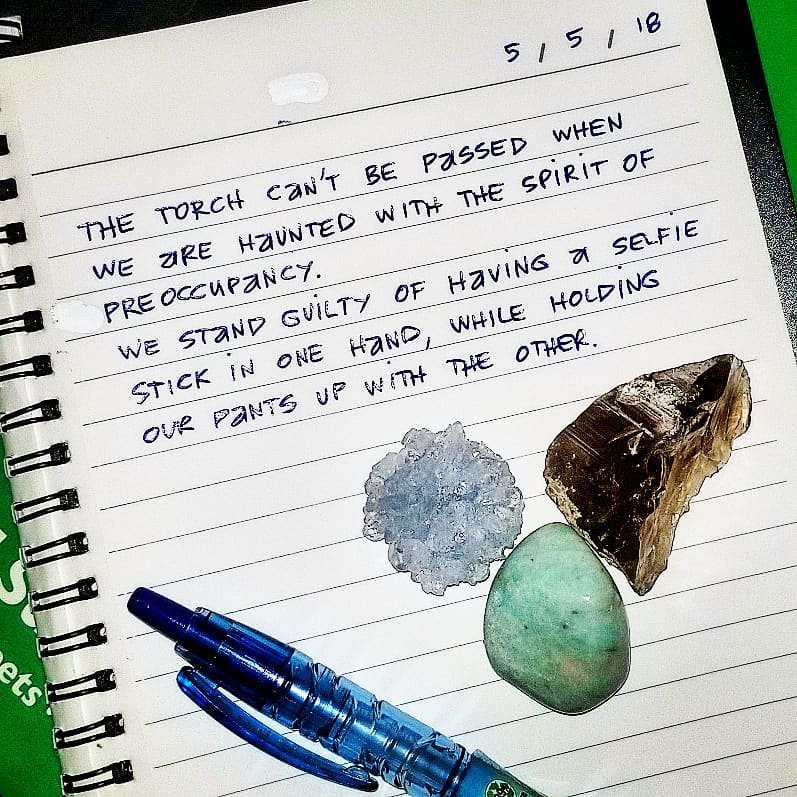 5 / 5 / '18
THE TORCH CAN'T BE PASSED WHEN
WE ARE HAUNTED WITH THE SPIRIT OF
PREOCCUPANCY.
WE STAND GUILTY OF HAVING A SELFIE
STICK IN ONE HAND, WHILE HOLDING
OUR PANTS UP WITH THE OTHER.